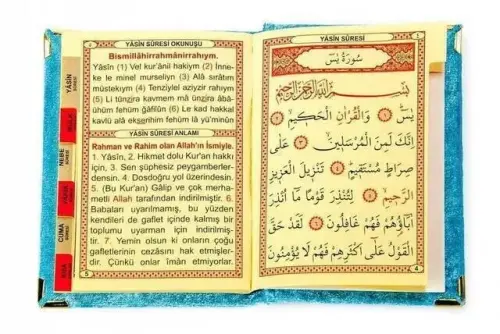 YÂSİN SÛRESİ OKUNUŞU
Bismillâhirrahmânirrahıym.
Yâsîn (1) Vel kur'ânil hakiym (2) İnne-
ke le minel murseliyn (3) Alâ sırâtım
müstekıym (4) Tenziylel aziyzir rahiym
(5) Li tünzira kavmem mâ ünzira âbâ-
ühüm fehüm ğâfilûn (6) Le kad hakkal
kavlü alâ ekserihim fehüm lâ yü'minûn
YÂSİN SÛRESİ ANLAMI
Rahman ve Rahim olan Allah'ın İsmiyle.
1. Yâsîn, 2. Hikmet dolu Kur'an hakkı
için, 3. Sen şüphesiz peygamberler-
densin. 4. Dosdoğru yol üzerindesin.
5. (Bu Kur'an) Gâlip ve çok merha-
metli Allah tarafından indirilmiştir. 6.
Babaları uyarılmamış, bu yüzden
kendileri de gaflet içinde kalmış bir
toplumu uyarman için indirilmiş-
tir. 7. Yemin olsun ki onların çoğu
gafletlerinin cezasını hak etmişler-
dir. Çünkü onlar îman etmiyorlar.
5
YÂSİN
SÛRESİ
NEBE
CUMA
YÂSİN SÛRESİ
سُورَةُ يٰسٓ
بِسْمِ اللّٰهِ الرَّحْمٰنِ الرَّحِيمِ
يٰسٓ ﴿١﴾ وَالْقُرْاٰنِ الْحَكِيمِ ﴿٢﴾
اِنَّكَ لَمِنَ الْمُرْسَلِينَ ﴿٣﴾ عَلٰى
صِرَاطٍ مُسْتَقِيمٍ ﴿٤﴾ تَنْزِيلَ الْعَزِيزِ
الرَّحِيمِ ﴿٥﴾ لِتُنْذِرَ قَوْمًا مَٓا اُنْذِرَ
اٰبَٓاؤُ۬هُمْ فَهُمْ غَافِلُونَ ﴿٦﴾ لَقَدْ حَقَّ
الْقَوْلُ عَلٰٓى اَكْثَرِهِمْ فَهُمْ لَا يُؤْمِنُونَ
4